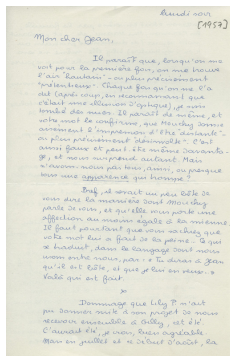 lundi soir
[1957]
Mon cher Jean,
Il paraît que, lorsqu'on me
voit pour la première fois, on me trouve
l'air "hautain" - ou plus précisément
"prétentieux". Chaque fois qu'on me l'a
dit (après coup, en reconnaissant que
c'était une illusion d'optique), je suis
tombé des nues. Il paraît de même, et
votre mot le confirme, que
l'impression d'être distante -
ou plus précisément "désinvolte". C'est
aussi faux et peut-être même davanta-
ge, et nous surprend autant. Mais
n'avons-nous pas tous, ami, ou presque
tous une apparence qui trompe ?
Bref, il serait un peu bête de
vous dire la manière dont
parle de vous, et qu'elle vous porte une
affection au moins égale à la mienne.
Il faut pourtant que vous sachiez que
votre mot lui a fait de la peine. Ce qui
se traduit, dans le langage dont nous
usons entre nous, par : « Tu diras à Jean
qu'il est bête, et que je lui en veux. »
Voilà qui est fait.
*
Dommage que Lily P. n'ait
pu donner suite à son projet de nous
recevoir ensemble à cet été.
C'aurait été, je crois, bien agréable.
Mais en juillet et à début d'août, la